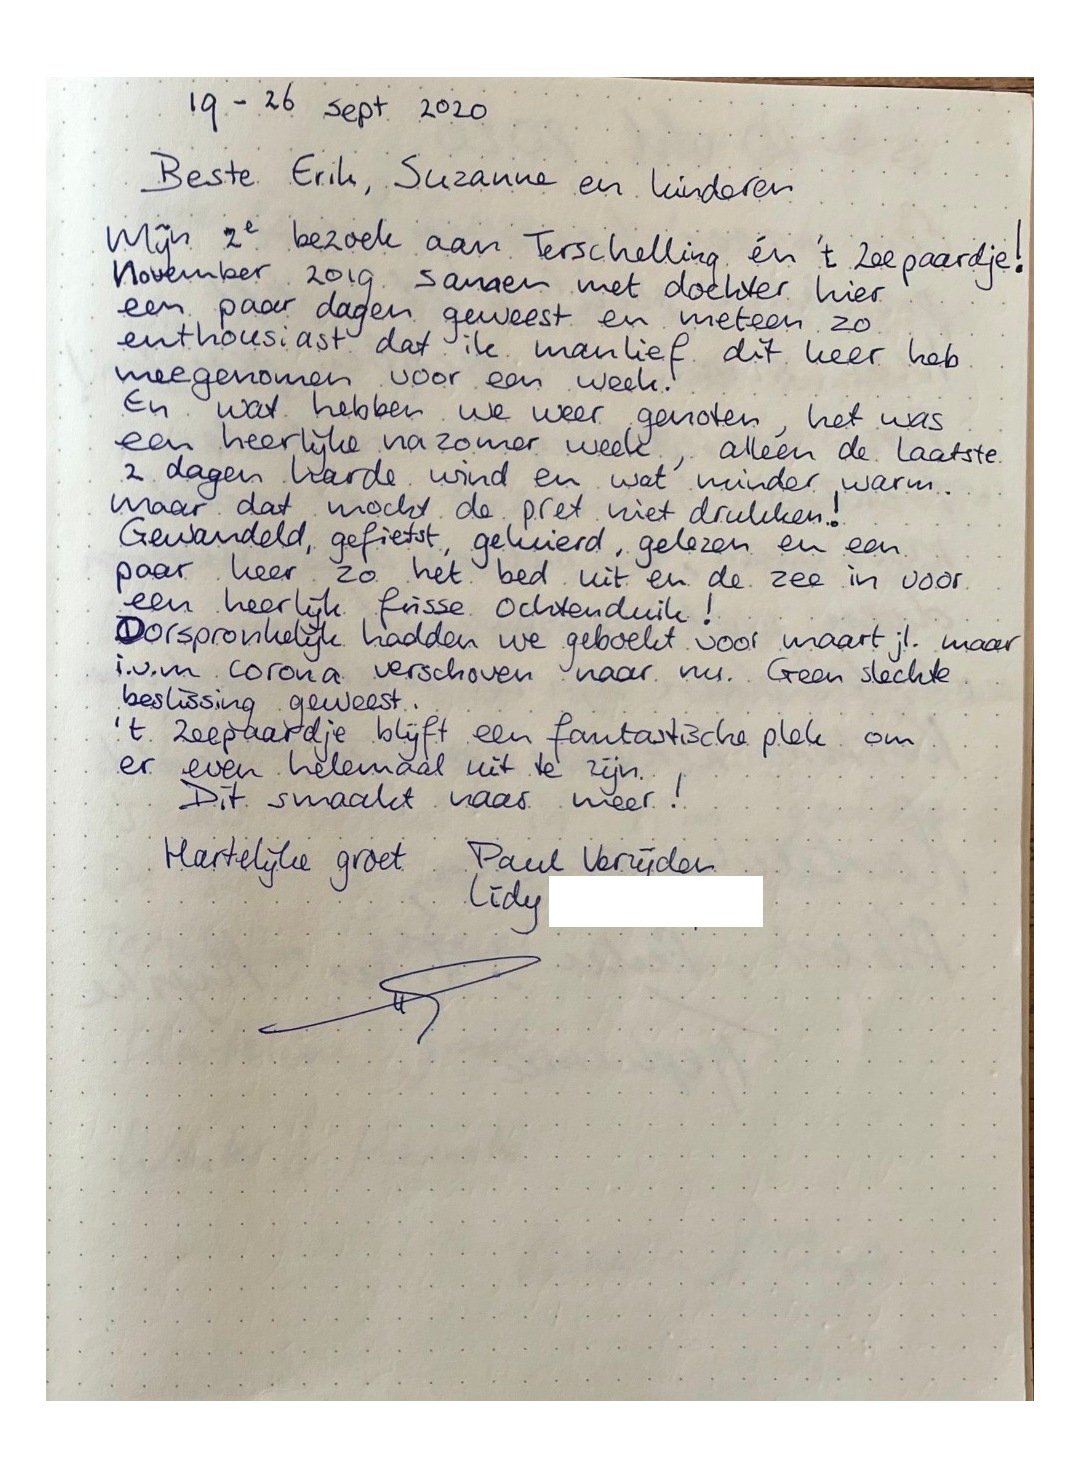 19 - 26 sept 2020
Beste Erik, Suzanne en kinderen
Mijn 2e bezoek aan Terschelling én 't Zeepaardje!
November 2019 samen met dochter hier
een paar dagen geweest en meteen zo
enthousiast dat ik manlief dit keer heb
meegenomen voor een week.
En wat hebben we weer genoten, het was
een heerlijke nazomer week, alleen de laatste
2 dagen harde wind en wat minder warm.
Maar dat mocht de pret niet drukken!
Gewandeld, gefietst, geluierd, gelezen en een
paar keer zo het bed uit en de zee in voor
een heerlijk frisse ochtenduik!
Oorspronkelijk hadden we geboekt voor maart jl. maar
i.v.m corona verschoven naar nu. Geen slechte
beslissing geweest.
't Zeepaardje blijft een fantastische plek om
er even helemaal uit te zijn.
Dit smaakt naar meer!
Hartelijke groet Paul Verzijden
Lidy